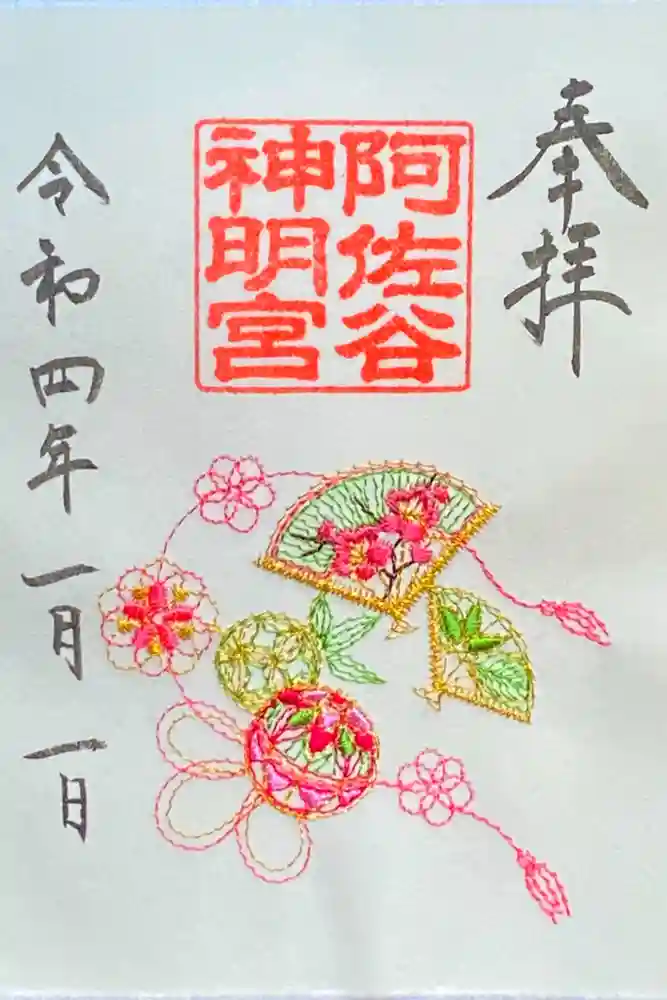 奉拝
阿佐谷
神明宮
令和四年一月一日